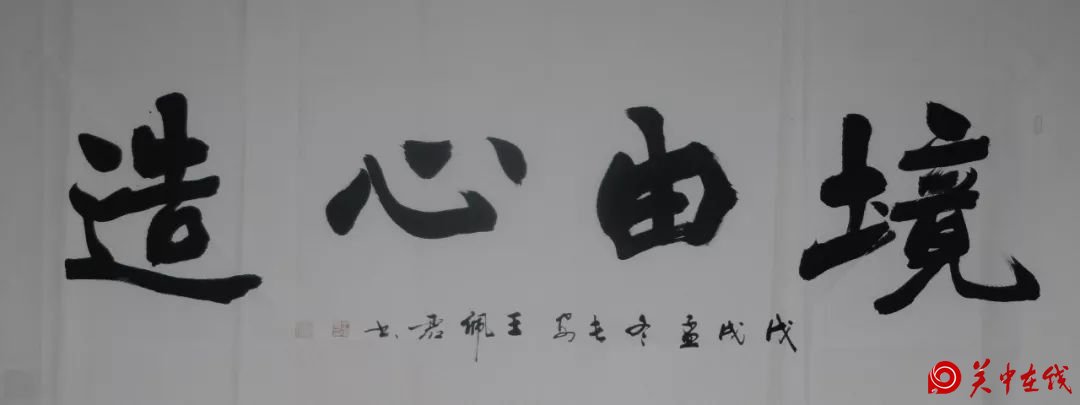 境由心造
戊戌孟冬长安王佩君书
关中在线